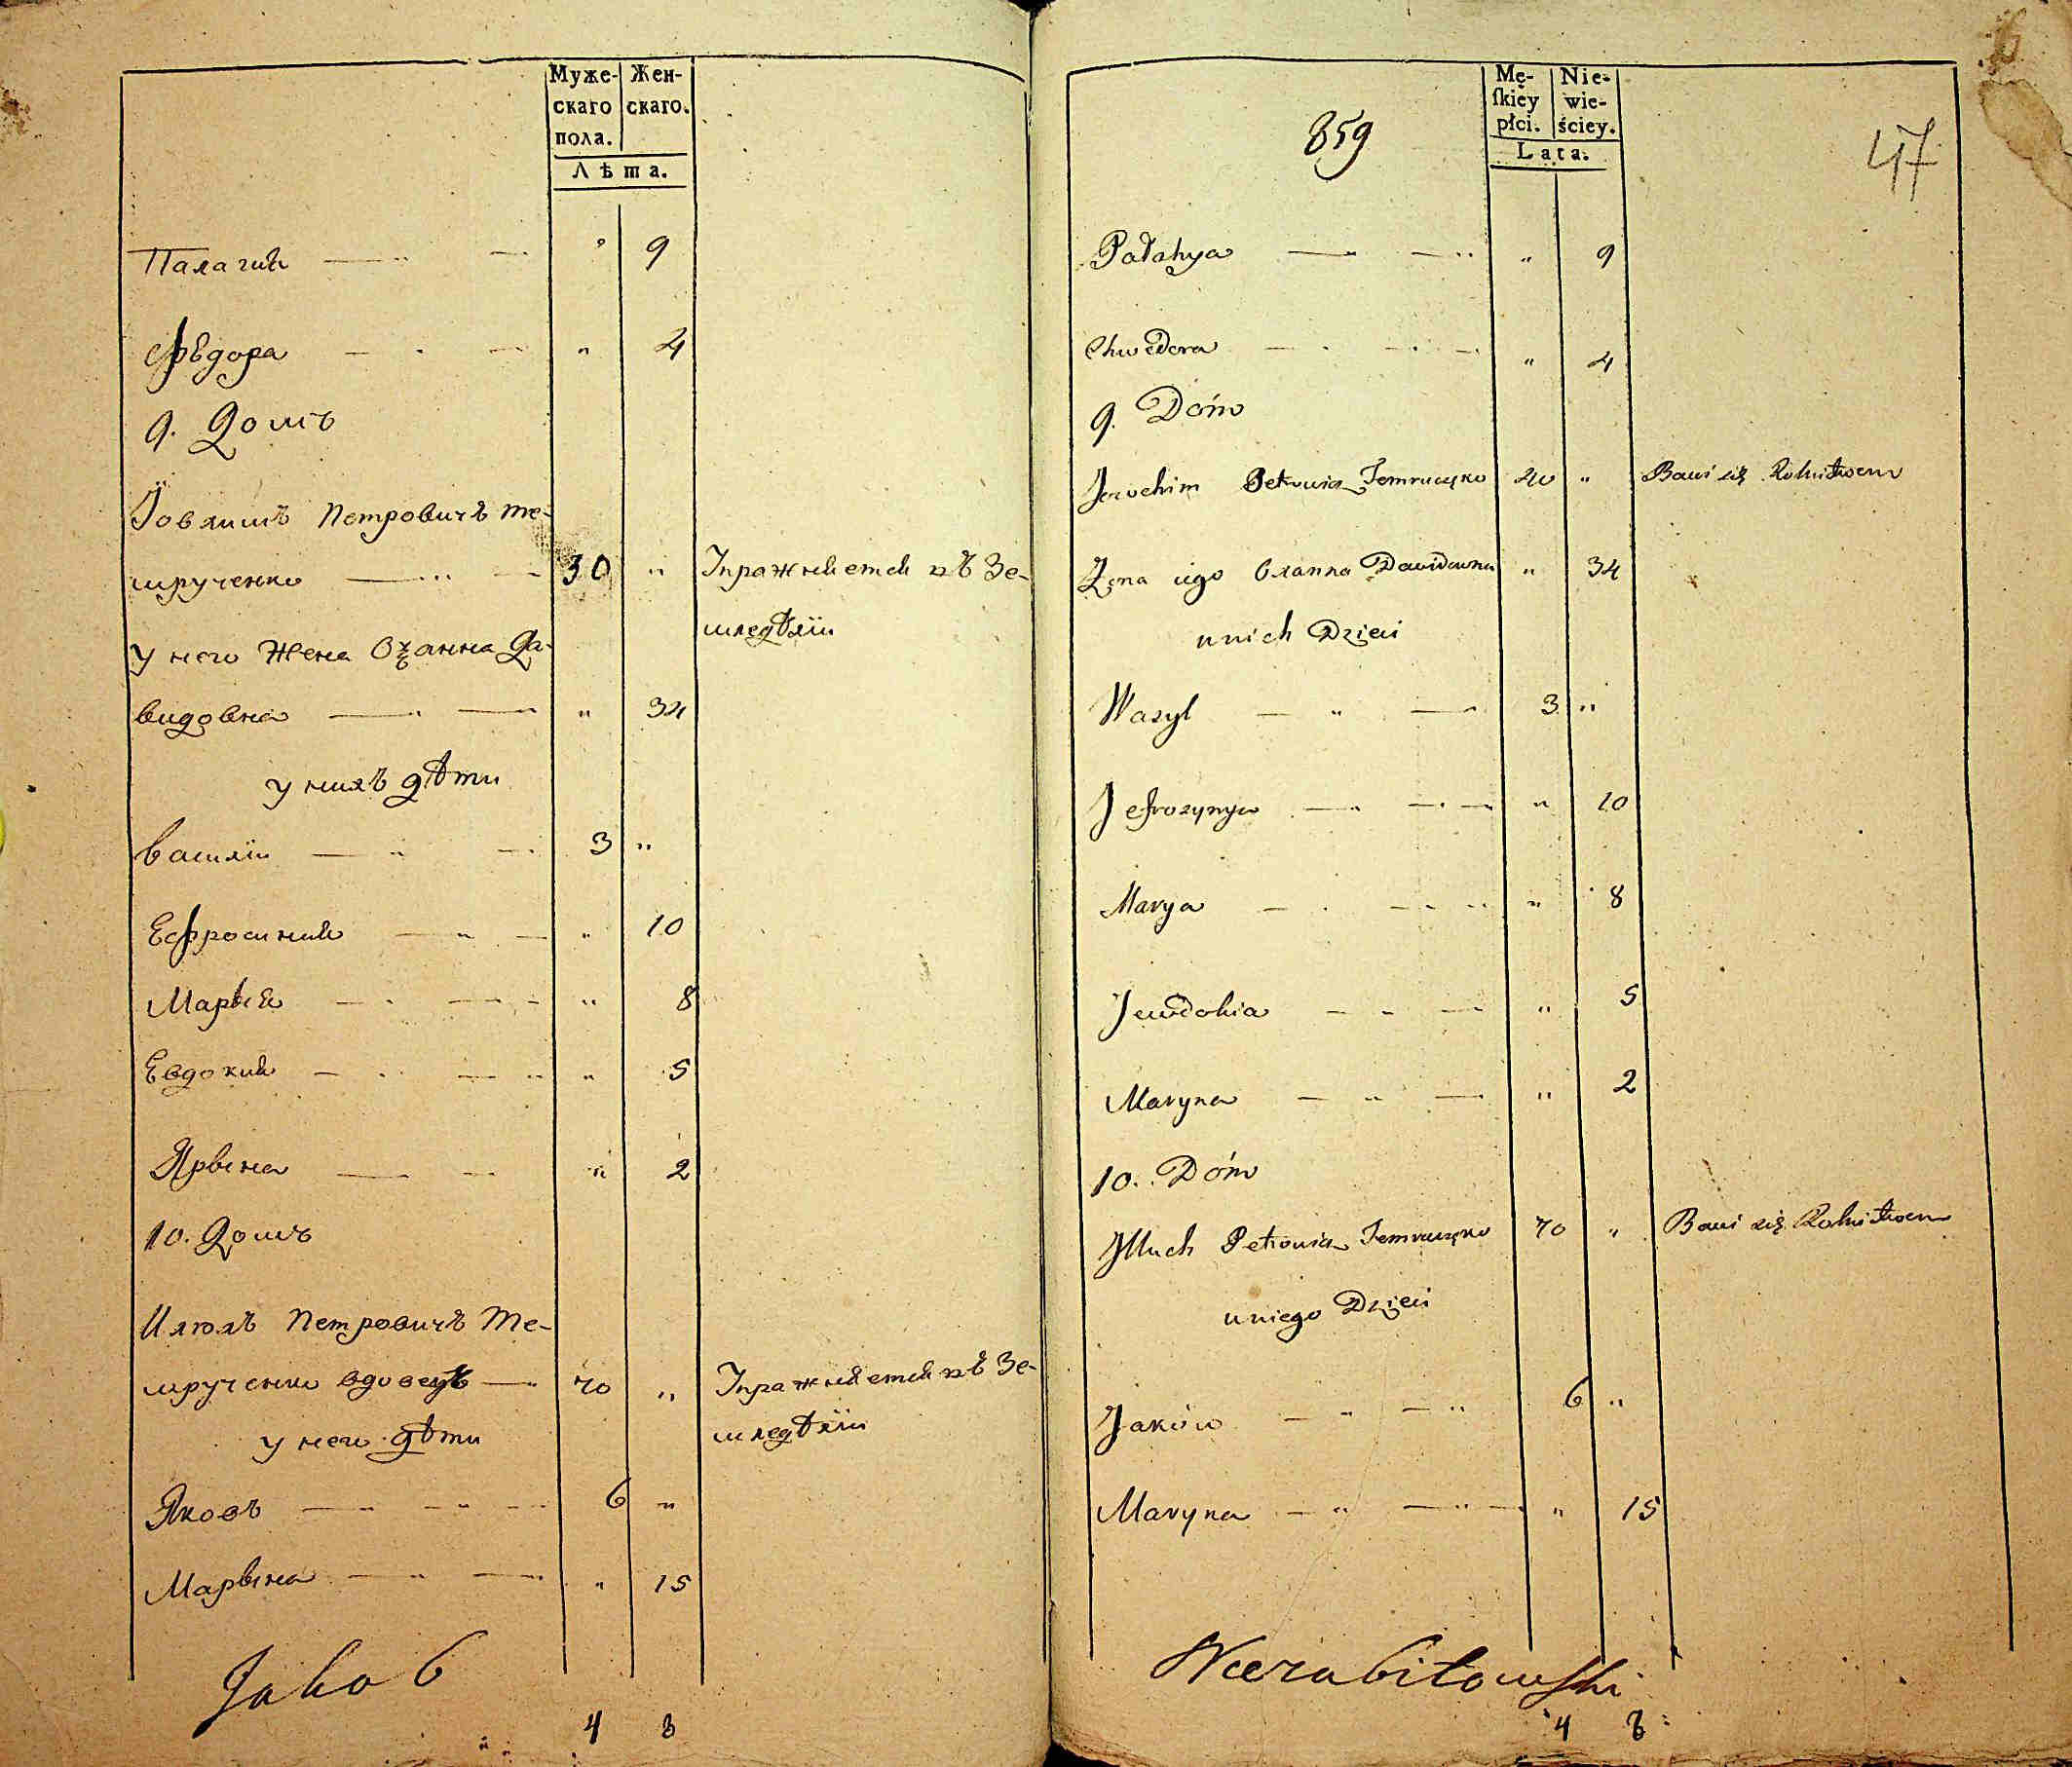 Муже-
скаго
пола.
Жен-
скаго.
Лѣта.
Палагия — " — " 9
Ѳедора — " — " 4
9. Домъ
Іовхимъ Петровичъ Те-
мрученко — " — 30 " Упражняется въ Зе-
мледѣлїи
у него Жена Оѯанна Да-
видовна — " — " 34
у нихъ дѣти
Василїи — " — 3 "
Ефросиния — " — " 10
Марья — " — " 8
Евдокия — " — " 5
Ярына — — " 2
10. Домъ
Илюхъ Петровичъ Те-
мрученко вдовецъ — 70 " Упражняется въ Зе-
мледѣлїи
у него дѣти
Яковъ — " — 6 "
Марына — " — " 15
Jakob
4 8
859
47
Mę-
ſkiéy
płci.
Nie-
wie-
ściey.
Lata.
Pałahya — " — " 9
Chwedora — " — " 4
9. Dóm
Jowchim Petrowicz Temruczęko 40 " Bawi się Rolnictwem
Żona iego Oxanna Dawidowna " 34
u nich Dzieci
Wasyl — " — 3 "
Jefrozynya — " — " 10
Marya — " — " 8
Jewdokia — " — " 5
Maryna — " — " 2
10. Dóm
Jlluch Petrowicz Temruczęko 70 " Bawi się Rolnictwem
u niego Dzieci
Jaków — " — 6 "
Maryna — " — " 15
4 8